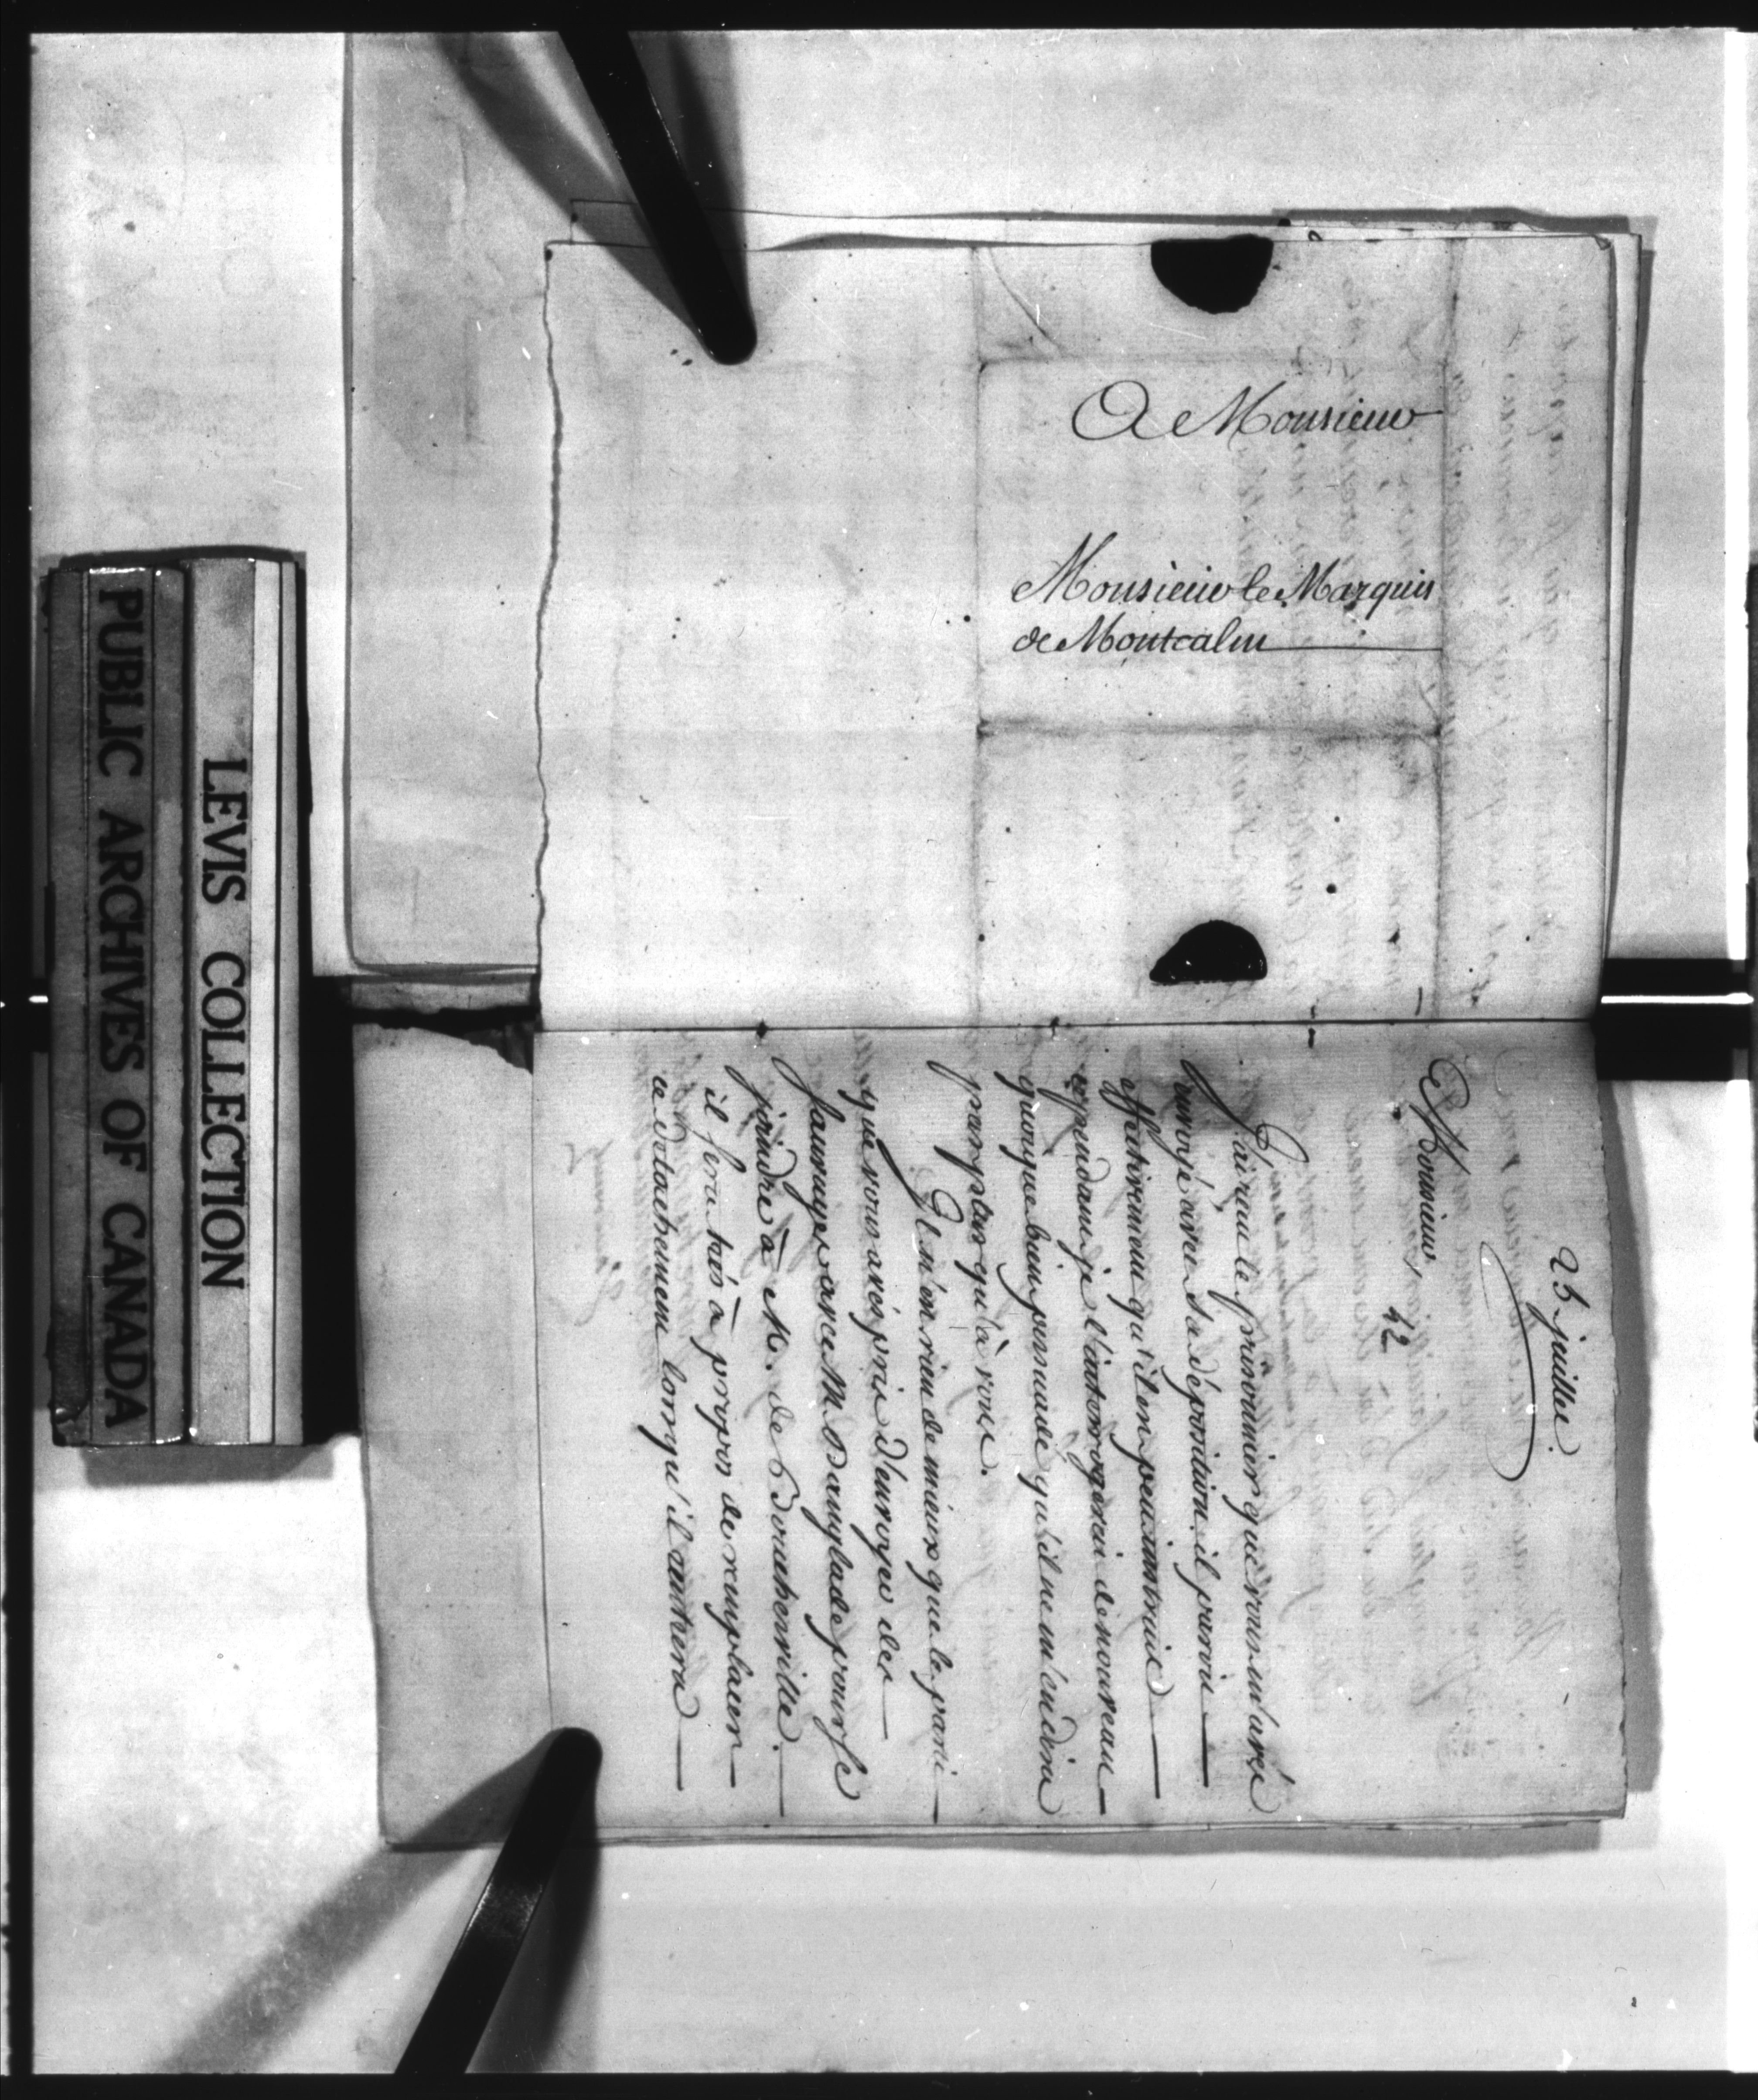 A Monsieur
Monsieur le Marquis
de Montcalm
25 juillet.
42
Monsieur,
J'ai reçu le prisonnier que vous m'avés
envoyé avec sa déposition. il paroit
effectivement qu'il en peu instruit
cependant je l'intérrogerai de nouveau
quoique bien persuadé qu'il ne m'en dira
pas plus qu'à vous.
Il n'en rien de mieux que le parti
que vous avés pris d'envoyer des
sauvages avec M. Danglade pour se
joindre à M. de Boucherville.
il sera très à propos de remplacer
ce détachement lorsqu'il rentrera
PUBLIC ARCHIVES OF CANADA
LEVIS COLLECTION